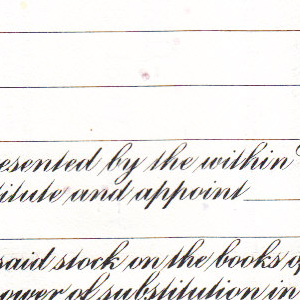 esented by the within
titute and appoint
said stock on the books o
ower of substitution in